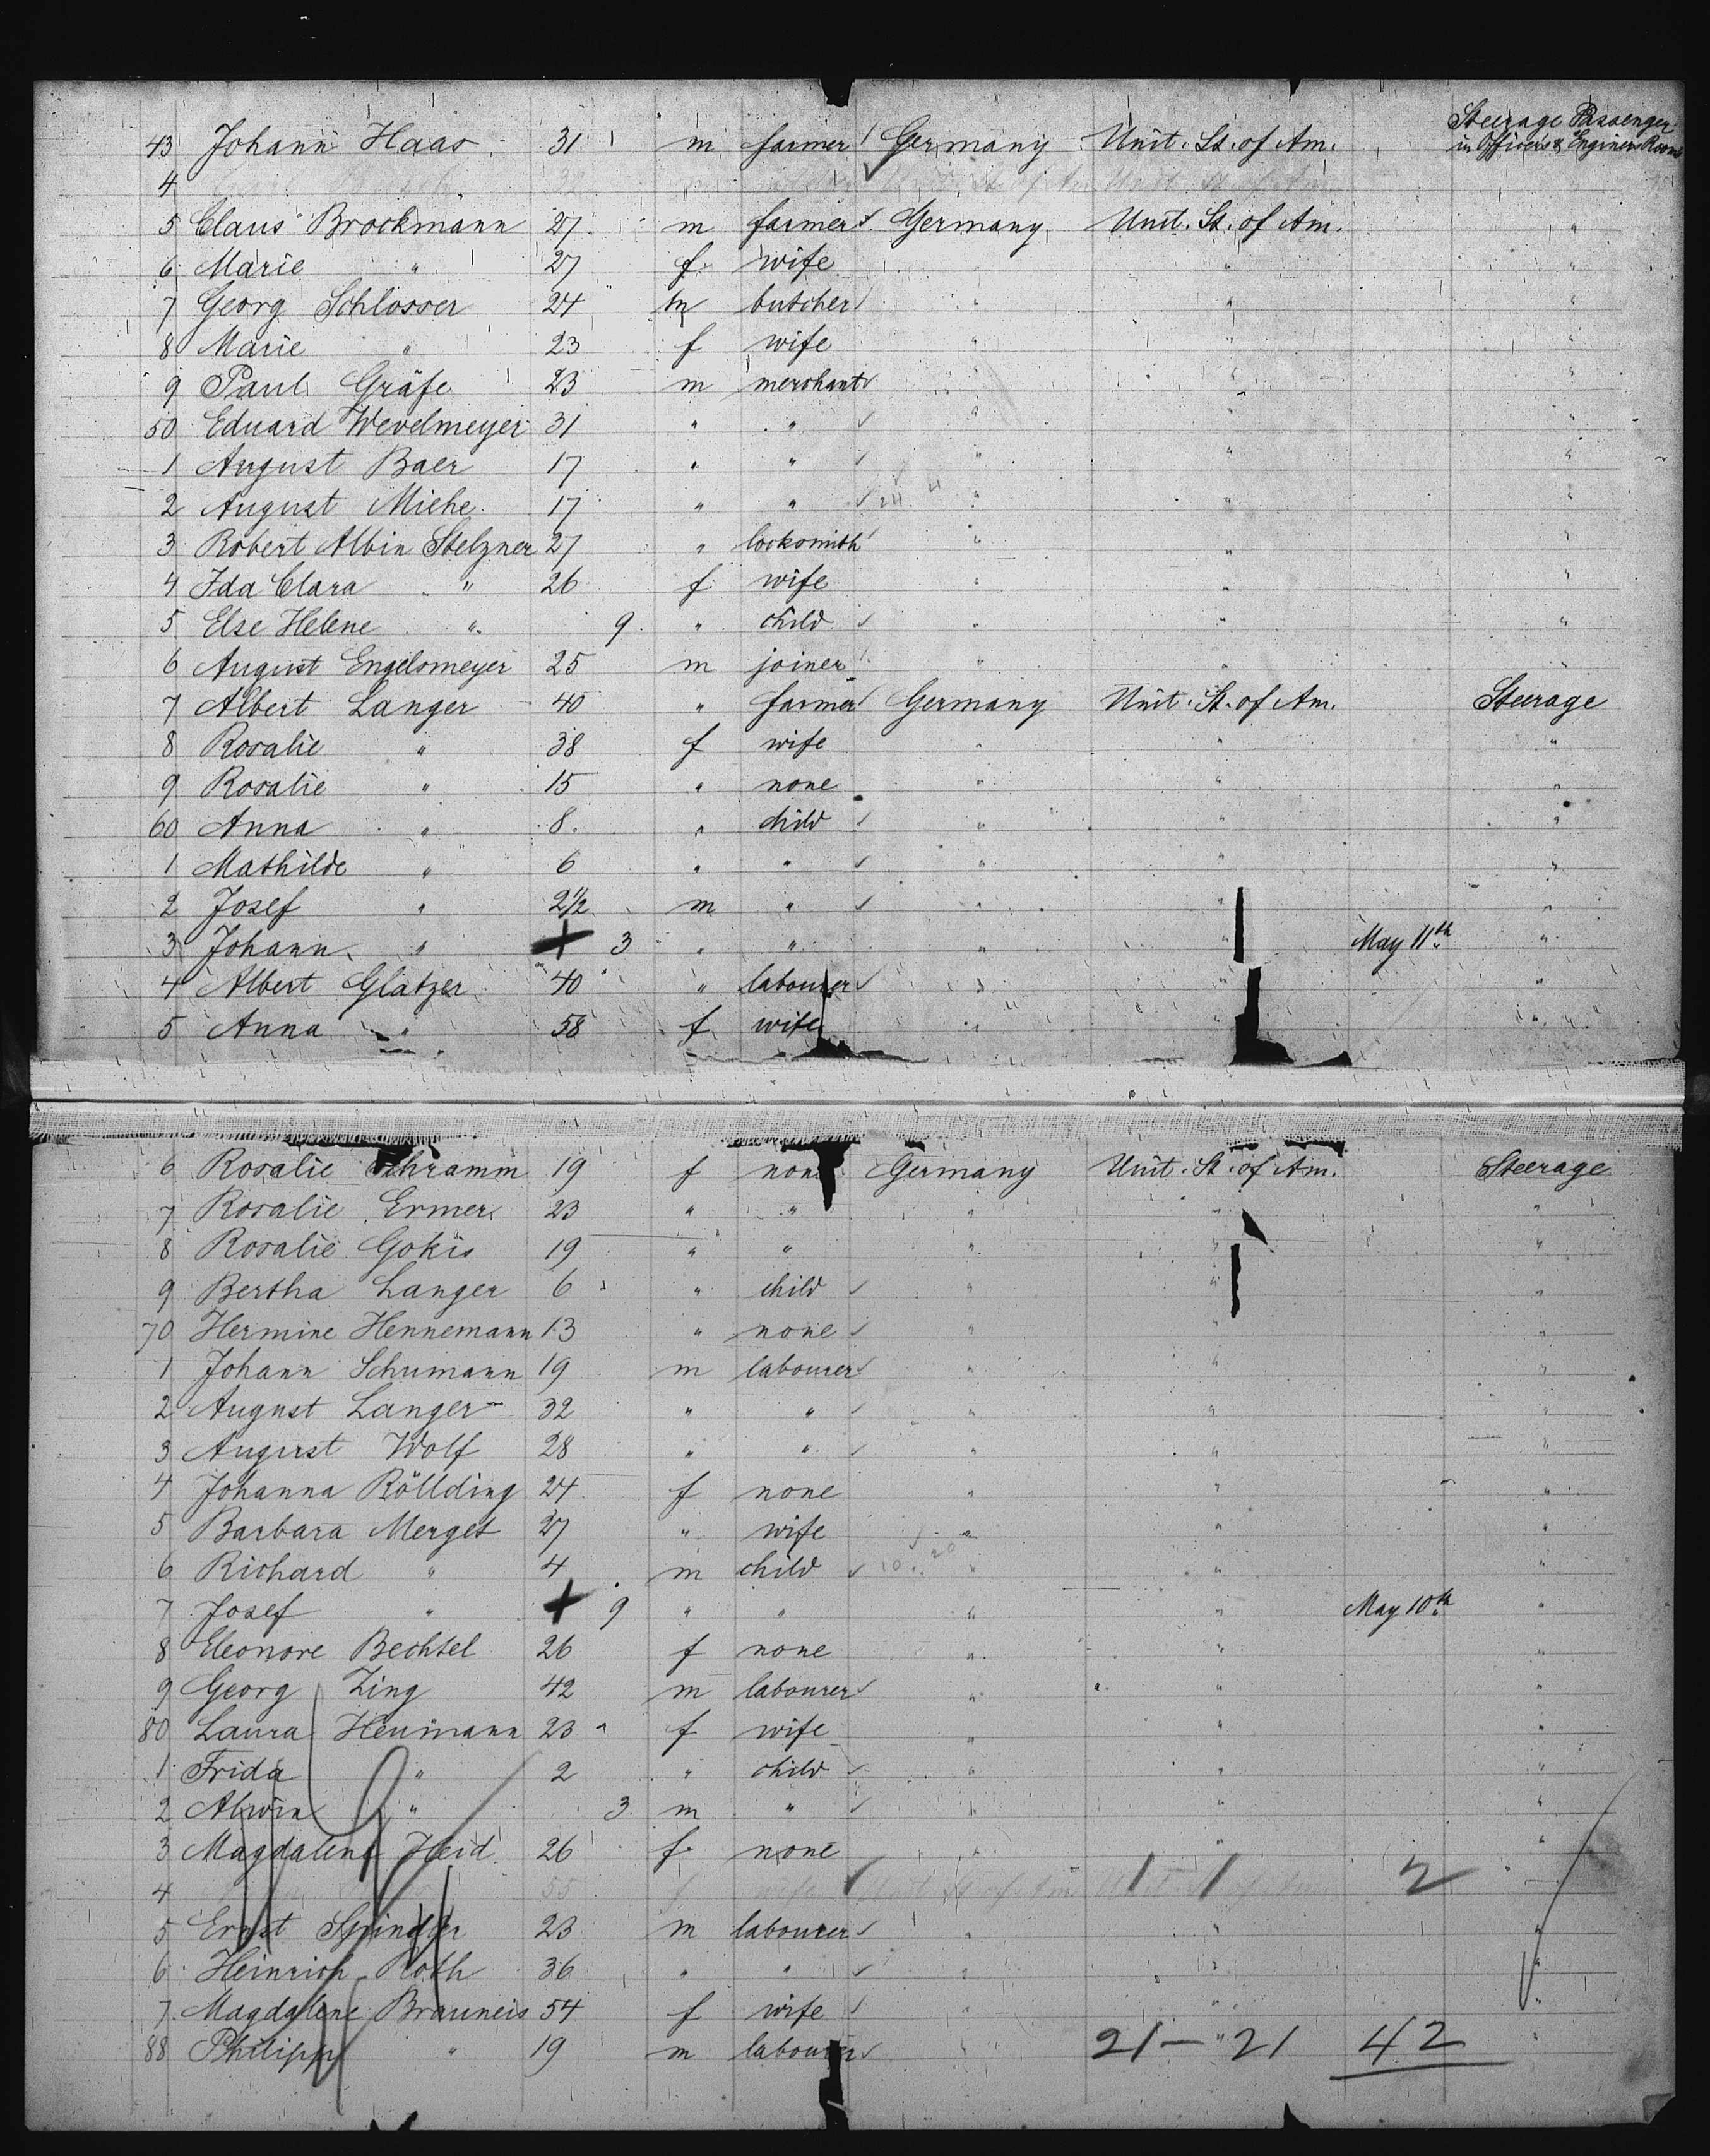 Steerage Passenger
43 Johann Haas 31 m farmer Germany Unit. St. of Am. in Officers & Engineers Room
4
5 Claus Brockmann 27 m farmer Germany Unit. St. of Am. "
6 Marie " 27 f wife " " "
7 Georg Schlosser 24 m butcher " " "
8 Marie " 23 f wife " " "
9 Paul Gräfe 23 m merchant " " "
50 Eduard Wevelmeyer 31 " " " " "
1 August Baer 17 " " " " "
2 August Miehe 17 " " " " "
3 Robert Albin Stelzner 27 " locksmith " " "
4 Ida Clara " 26 f wife " " "
5 Else Helene " 9 " child " " "
6 August Engelsmeyer 25 m joiner " " "
7 Albert Langer 40 " farmer Germany Unit. St. of Am. Steerage
8 Rosalie " 38 f wife " " "
9 Rosalie " 15 " none " " "
60 Anna " 8 " child " " "
1 Mathilde " 6 " " " " "
2 Josef " 2 1/2 m " " " "
3 Johann " + 3 " " " " May 11th "
4 Albert Glatzer 40 " labourer " " "
5 Anna " 58 f wife " " "
6 Rosalie Schramm 19 f none Germany Unit. St. of Am. Steerage
7 Rosalie Ermer 23 " " " " "
8 Rosalie Gokis 19 " " " " "
9 Bertha Langer 6 " child " " "
70 Hermine Hennemann 13 " none " " "
1 Johann Schumann 19 m labourer " " "
2 August Langer 32 " " " " "
3 August Wolf 28 " " " " "
4 Johanna Röllding 24 f none " " "
5 Barbara Merget 27 " wife " " "
6 Richard " 4 m child " " "
7 Josef " + 9 " " " " May 10th "
8 Eleonore Bechtel 26 f none " " "
9 Georg Zing 42 m labourer " " "
80 Laura Heumann 23 f wife " " "
1 Frida " 2 " child " " "
2 Alwin " 3 m " " " "
3 Magdalena Heid 26 f none " " "
4 55 f wife 1 1 2
5 Ernst Spindler 23 m labourer " " "
6 Heinrich Roth 36 " " " " "
7 Magdalene Brauneis 54 f wife " " "
88 Philipp " 19 m labourer " " "
21 - 21 42